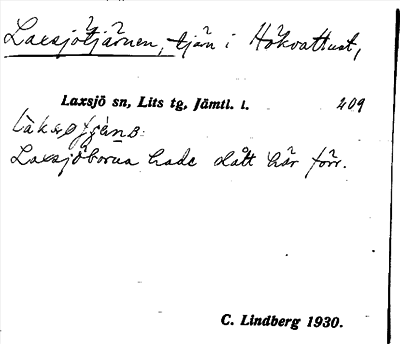 Laxsjötjärnen, tjärn i Håkvattnet,
Laxsjö sn, Lits tg, Jämtl. l. 409
Laxsjöborna hade slått här förr.
C. Lindberg 1930.